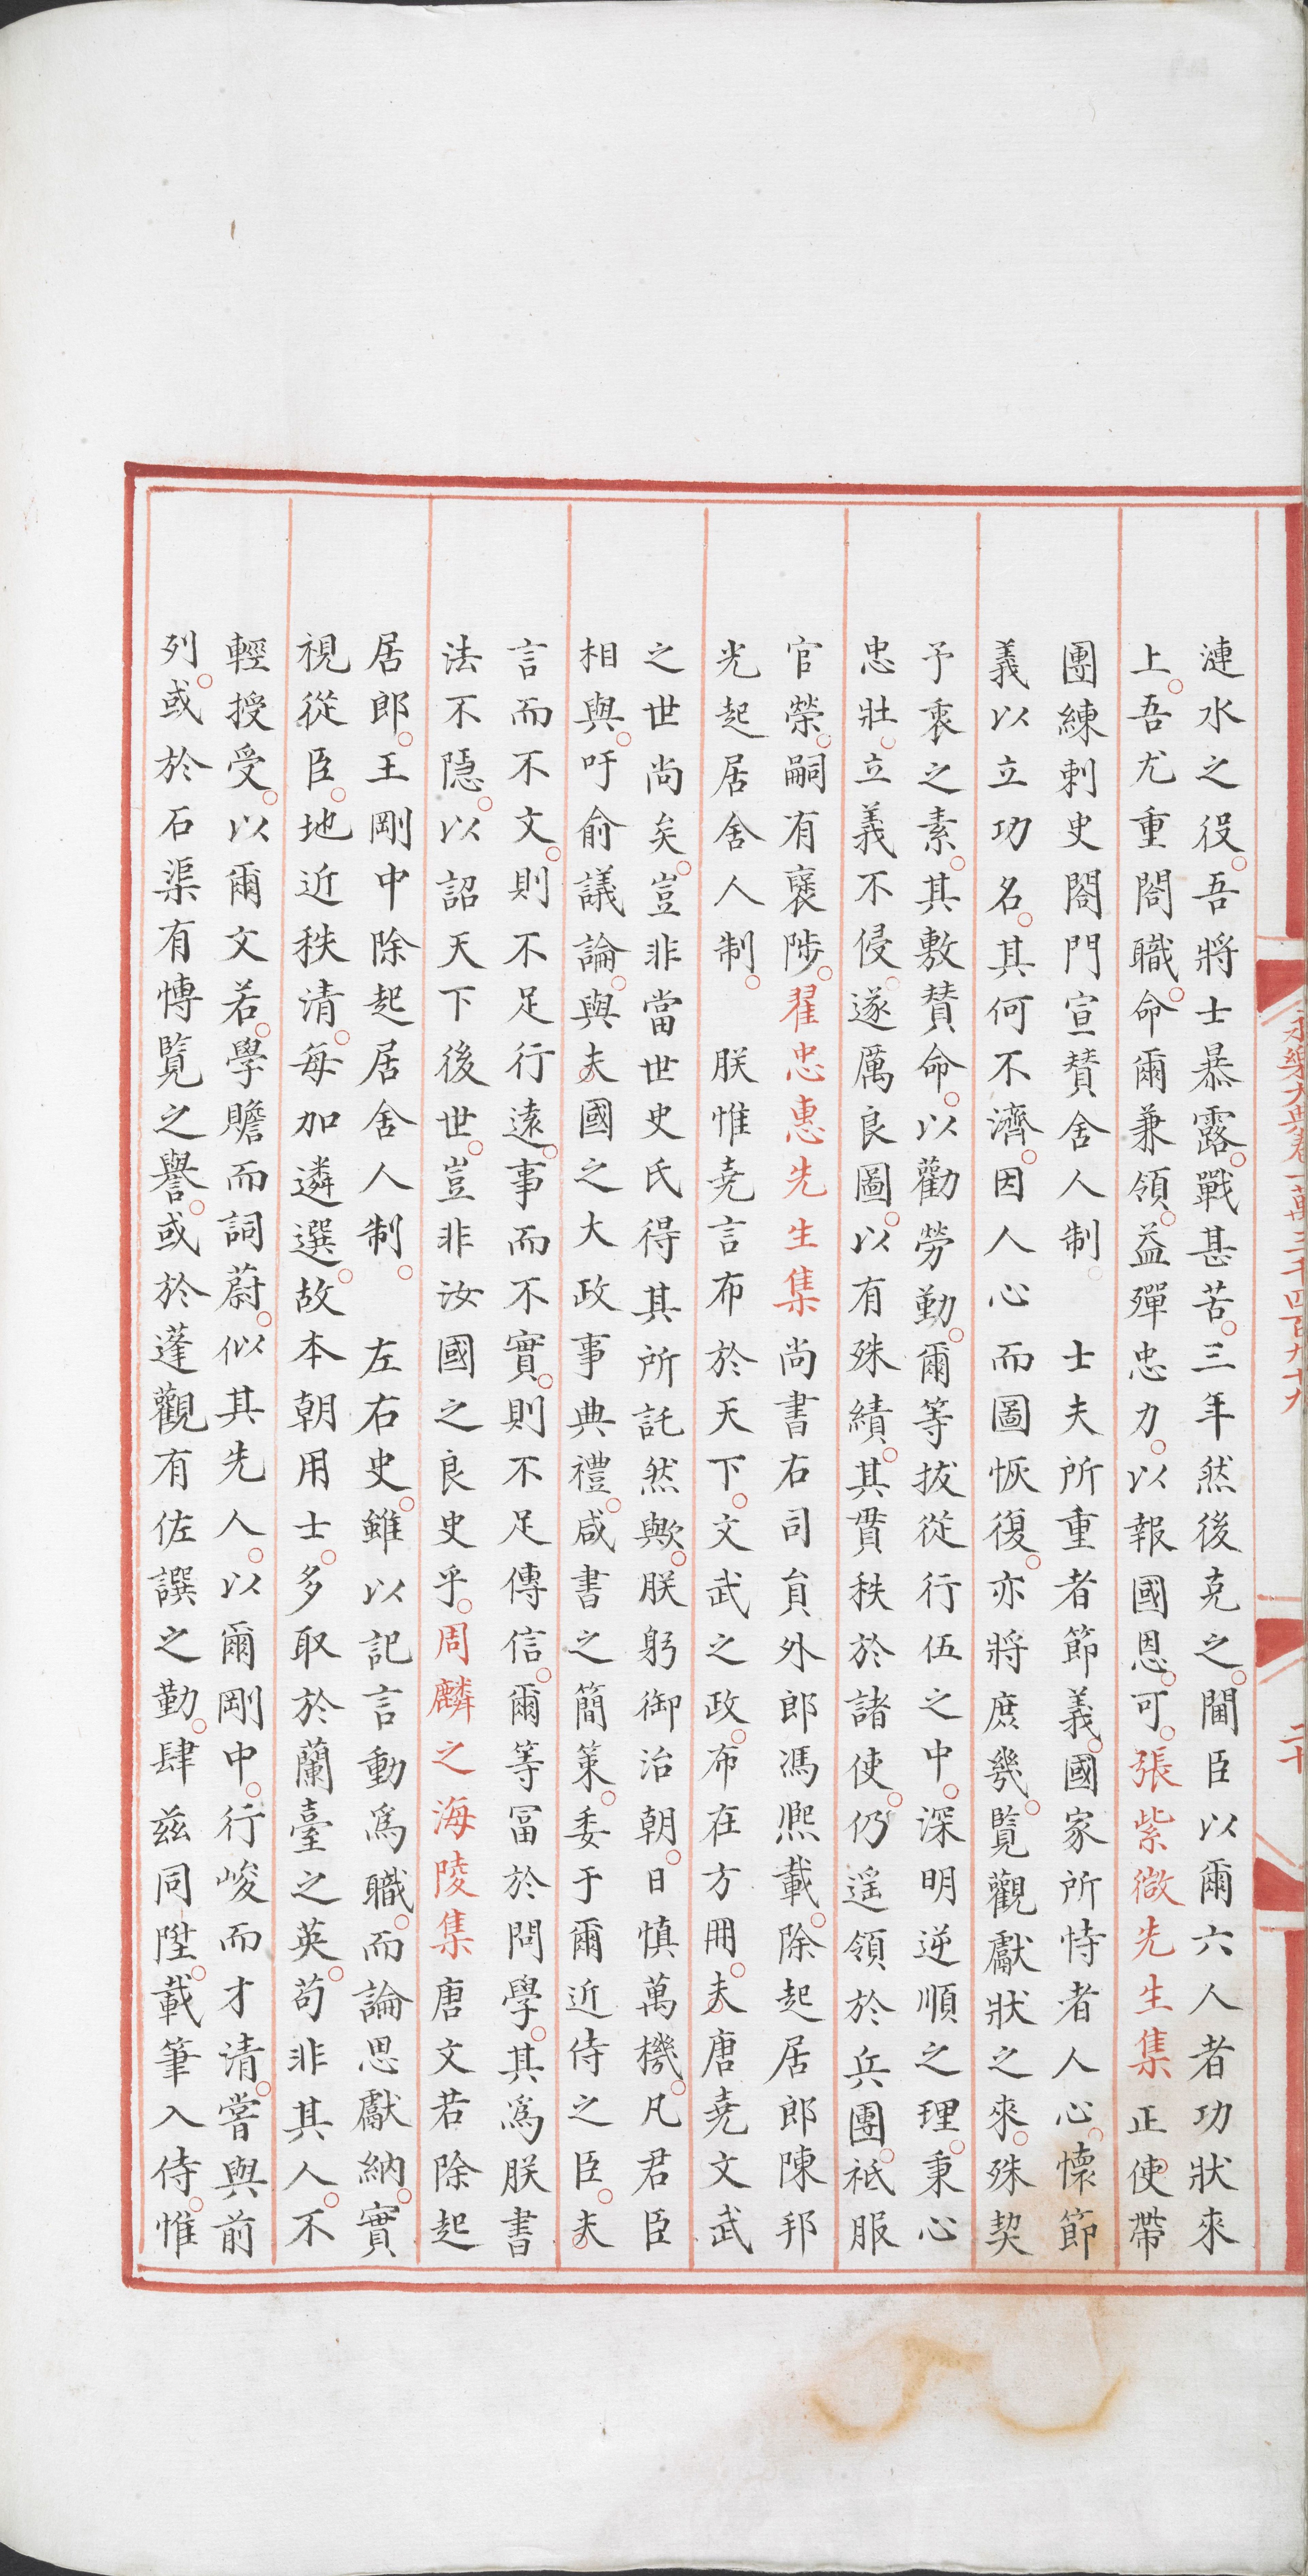 永樂大典卷一萬三千四百九十九
二十
漣水之役。吾將士暴露。戰甚苦。三年然後克之。閫臣以爾六人者功狀來
上。吾尤重閤職。命爾兼領。益殫忠力。以報國恩。可。張紫微先生集正使帶
團練刺史閤門宣贊舍人制。 士夫所重者節義。國家所恃者人心。懷節
義以立功名。其何不濟。因人心而圖恢復。亦將庶幾。覽觀獻狀之來。殊契
予衷之素。其敷贊命。以勸勞勤。爾等拔從行伍之中。深明逆順之理。秉心
忠壯。立義不侵。遂厲良圖。以有殊績。其貫秩於諸使。仍遥領於兵團。祗服
官榮。嗣有襃陟。翟忠惠先生集尚書右司員外郎馮熈載。除起居郎陳邦
光起居舍人制。 朕惟堯言布於天下。文武之政。布在方冊。夫唐堯文武
之世尚矣。豈非當世史氏得其所託然歟。朕躬御治朝。日慎萬機。凡君臣
相與。吁俞議論。與夫國之大政事典禮。咸書之簡策。委于爾近侍之臣。夫
言而不文。則不足行遠。事而不實。則不足傳信。爾等冨於問學。其爲朕書
法不隱。以詔天下後世。豈非汝國之良史乎。周麟之海陵集唐文若除起
居郎。王剛中除起居舍人制。 左右史。雖以記言動爲職。而論思獻納。實
視從臣。地近秩清。每加遴選。故本朝用士。多取於蘭臺之英。苟非其人。不
輕授受。以爾文若。學贍而詞蔚。似其先人。以爾剛中。行峻而才清。嘗與前
列。或於石渠有愽覧之譽。或於蓬觀有佐譔之勤。肆兹同陞。載筆入侍。惟